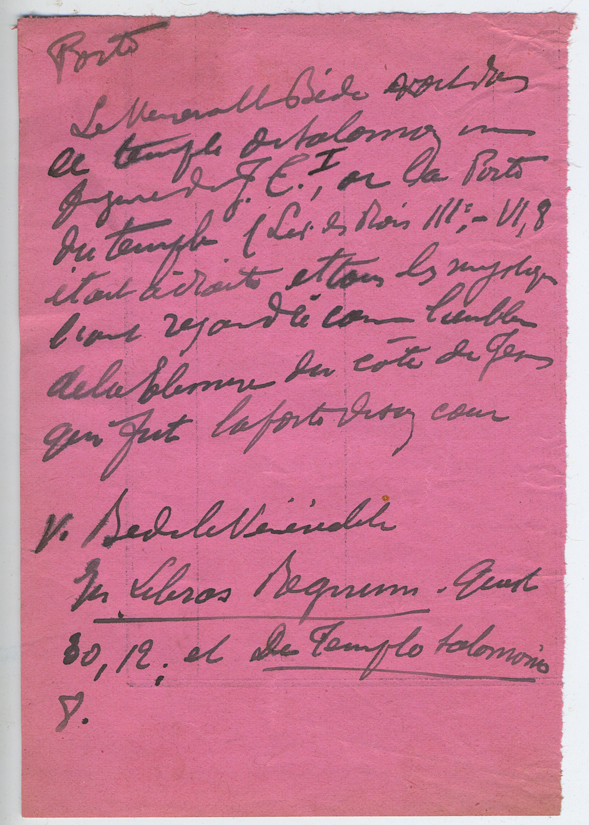 Porte
Le Venerable Bède voit dans
le temple de Salomon une
figure de J. C., or la Porte
du temple (Lex. des Rois III, - VI, 8
était à droite et tous les mystiques
l'ont regardé comme l'emblème
de la blessure du côté de Jesus
qui fut la porte de son coeur
V. Bede le Vénérable
In Libros Regnum. Quest
30, 12; et De Templo Salomonis
8.